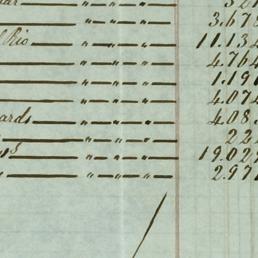 " " "
" " " 3.675
Rio " " " 11.134
" " " 4.764
" " " 1.19
" " " 4.074
ards " " " 4.08
" " " 22
" " " 19.02
" " " 2.97